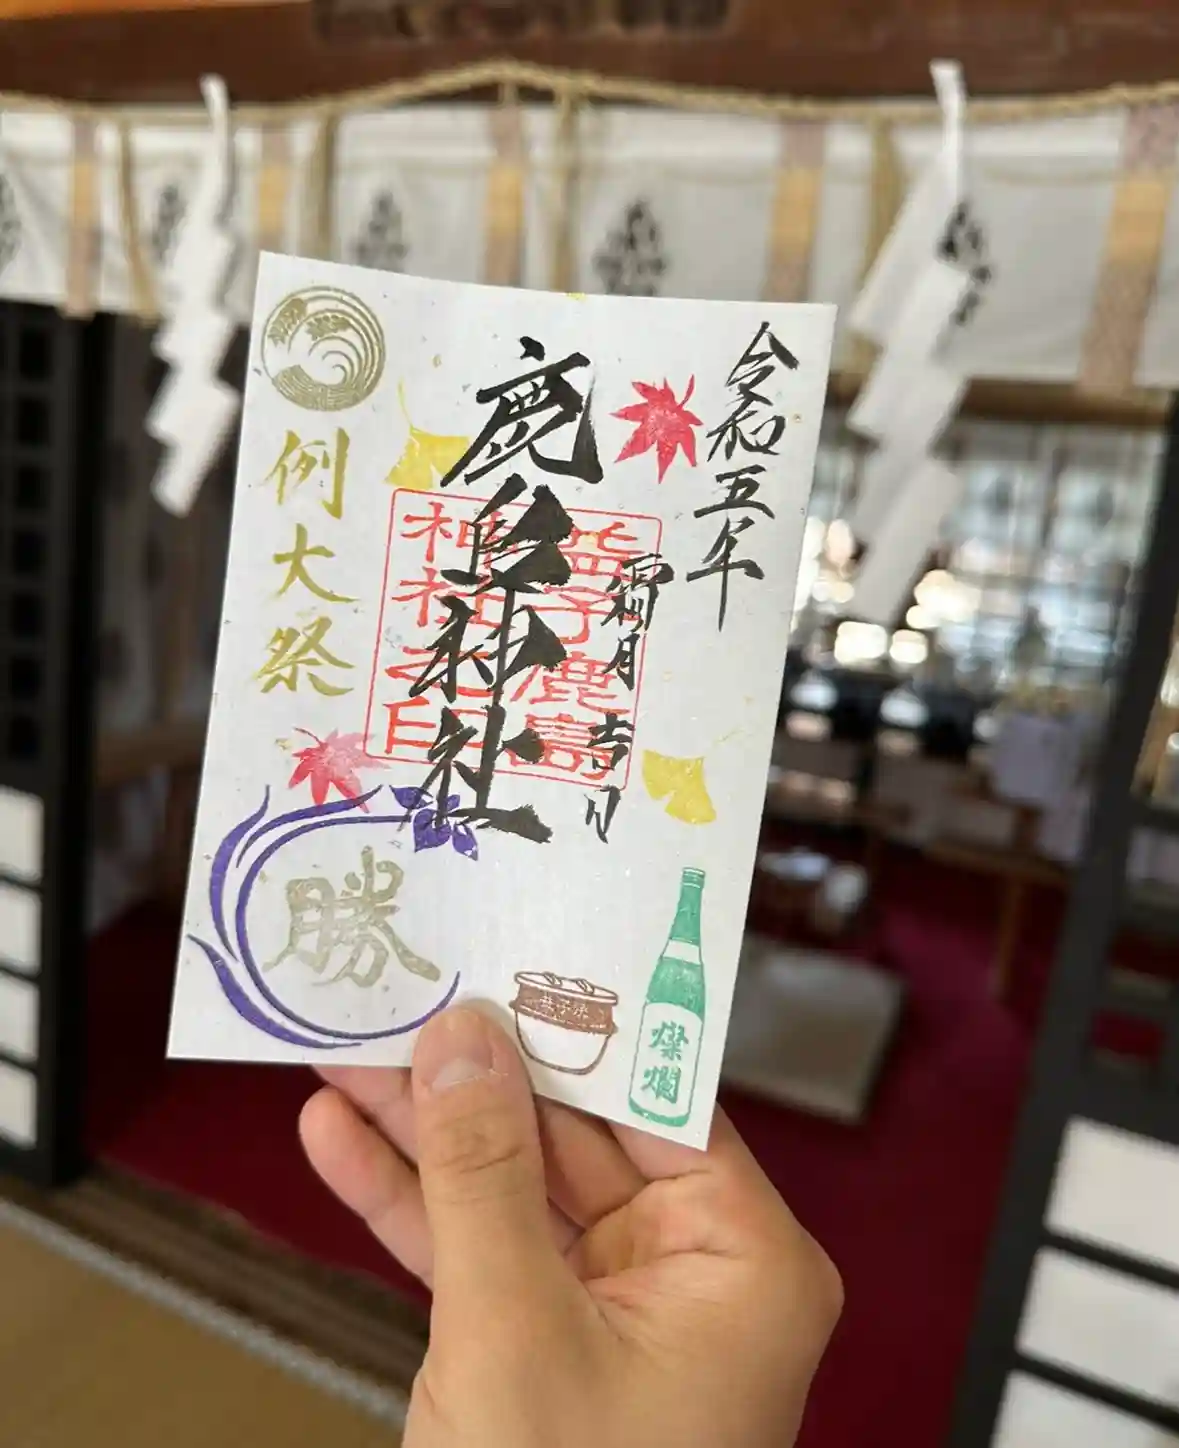 令和五年
霜月 吉日
鹿島神社
益子鹿島
神社之印
例大祭
勝
益子焼
燦爛